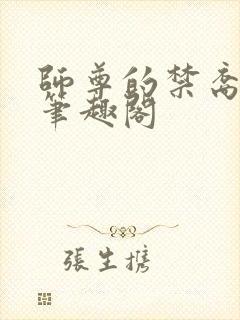 師尊的禁脔
筆趣閣
張生携